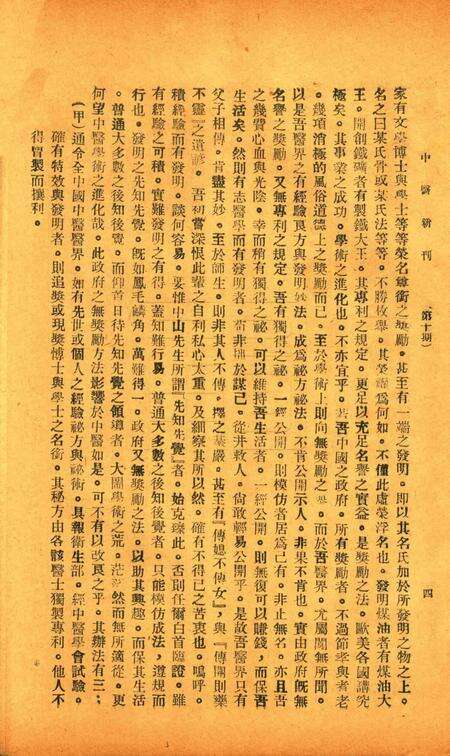 中醫新刊
（第十期）
四
家有文學博士與學士等等榮名尊銜之獎勵。甚至有一端之發明。即以其名氏加於所發明之物之上。
名之曰某氏骨或某氏法等等。不勝枚舉。其榮譽爲何如。不僅此虛榮浮名也。發明煤油者有煤油大
王。開創鐵礦者有製鐵大王。其專利之規定。更足以充足名譽之實益。是獎勵之法。歐美各國講究
極矣。其事業之成功。學術之進化也。不亦宜乎。若吾中國之政府。所有獎勵者。不過節孝與耆老
。幾項消極的風俗道德上之獎勵而已。至於學術上則向無獎勵之舉。而於吾醫界。尤屬闃無所聞。
以是吾醫界之有經驗良方與發明妙法。成爲秘方秘法。不肯公開示人。非果不肯也。實由政府既無
名譽之獎勵。又無專利之規定。吾有獨得之秘。一經公開。則模仿者居爲己有。非止無名。亦且吾
之幾費心血與光陰。幸而稍有獨得之秘。可以維持吾生活者。一經公開。則無復可以賺錢，而保吾
生活矣。然則有志醫學而有發明者。苟非拙於謀己。從井救人。尙敢輕易公開乎。是故吾醫界只有
父子相傳。肯盡其妙。至於師生。則非其人不傳。擇之綦嚴。甚至有『傳媳不傳女』，與『傳開則藥
不靈』之遺諺。吾初嘗深恨此輩之自利私心太重。及細察其所以然。確有不得已之苦衷也。嗚呼。
積經驗而有發明。談何容易。要惟中山先生所謂『先知先覺』者。始克臻此。否則任爾白首臨證。雖
有經驗之可積。實難發明之有得。蓋知難行易。普通大多數之後知後覺者。只能模仿成法，遵規而
行也。發明之先知先覺。既如鳳毛麟角。萬難得一。政府又無獎勵之法。以助其興趣。而保其生活
。普通大多數之後知後覺。而仰首日待先知先覺之領導者。大鬧學術之荒。茫茫然而無所適從。更
何望中醫學術之進化哉。此政府之無獎勵方法影響於中醫如是。可不有以改良之乎。其辦法有三：
（甲）通令全中國中醫醫界。如有先世或個人之經驗秘方與秘術。具報衛生部。經中醫學會試驗。
確有特效與發明者。則追獎或現獎博士與學士之名銜。其秘方由各該醫士獨製專利。他人不
得冒製而攘利。